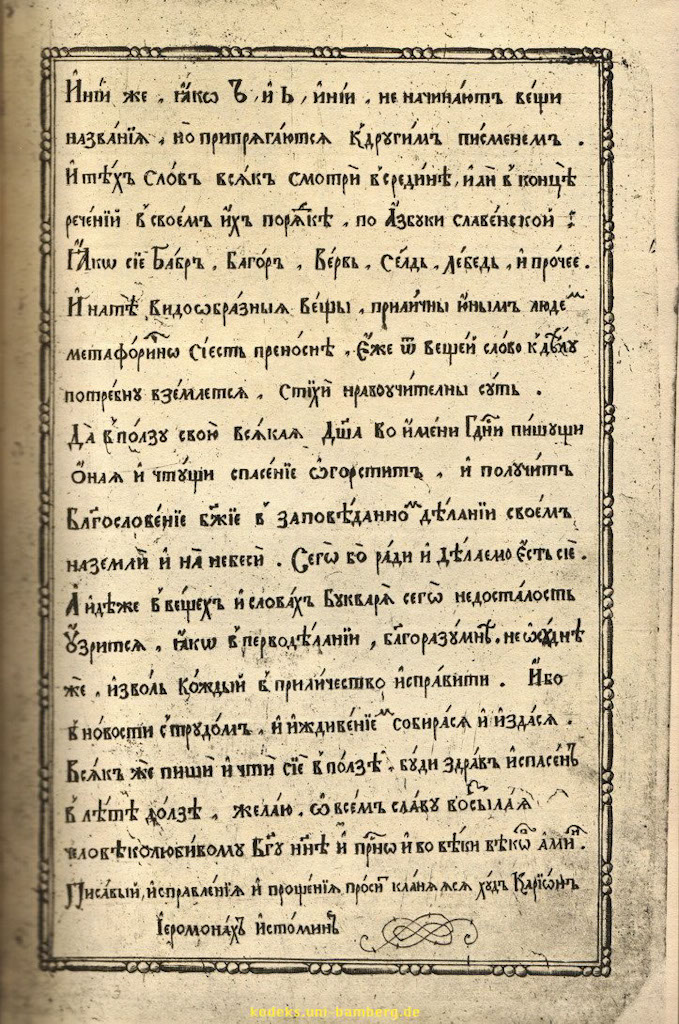 И҆ні́и же , ꙗ҆́кѡ Ъ , и҆ Ь , и҆ні́и , не начина́ютъ ве́щи
назва́нїѧ , но припрѧга́ютсѧ к̾ други́мъ пи́сменемъ .
И҆ тѣ́хъ сло́въ всѧ́къ смотрѝ в̾ среди́нѣ , и҆лѝ в̾ концѣ̀
рече́нїй в̾ свое́мъ и҆́хъ порѧ́дкѣ , по А҆́збуки славе́нской :
Ꙗ҆́кѡ сїѐ Ба́бръ , Баго́ръ , Ве́рвь , Се́лдь , Ле́бедь , и҆ про́чее .
И҆ на тѣ̀ видоѡбра́зныѧ ве́щы , прили́чны и҆ны́мъ люде́м
метафори́чнѡ сі́есть прено́снѣ , Е҆́же ѿ веще́й сло́во к̾ дѣ́лу
потре́бну взе́млетсѧ , Стїхѝ нравоучи́телны су́ть .
Да̀ в̾ по́лзу свою̀ всѧ́каѧ Дш҃а̀ во и҆́мени Гд҇ни пи́шущи
о҆́наѧ и҆ чту́щи спасе́нїе ѡ҆горсти́тъ , и҆ полу́читъ
Блг҇ослове́нїе бж҃їе в̾ запове́данном дѣ́ланїи свое́мъ
на землѝ и҆ на̀ небесѝ . Сегѡ̀ бо̀ ра́ди и҆ дѣ́лаемо є҆́сть сїѐ .
А҆ и҆дѣ́же в̾ ве́щехъ и҆ слова́хъ Букварѧ̀ сегѡ̀ недоста́лость
Оу҆́зритсѧ , ꙗ҆́кѡ в̾ перводѣ́ланїи , бл҃горазу́мнѣ , не ѡ҆су́днѣ
же , и҆зво́ль ко́ждый в̾ прили́чество и҆спра́вити . И҆́бо
в̾ но́вости с̾ трудо́мъ , и҆ и҆ждиве́нїем собра́сѧ и҆ и҆зда́сѧ .
Всѧ́къ же пишѝ и҆ чтѝ сїѐ в̾ по́лзѣ , бу́ди здра́въ и҆ спасе́нъ
в̾ лѣ́тѣ до́лзѣ , жела́ю , ѡ҆ все́мъ сла́ву возсыла́ѧ
человѣколюби́вому Бг҃у нн҃ѣ и҆ при́снѡ и҆ во вѣ́ки вѣкѡ́въ а҆ми́нь .
Писа́вый , и҆справле́нїѧ и҆ проще́нїѧ , про́сит кла́нѧѧсѧ ху́дъ Карїѡ́нъ
І҆еромона́хъ И҆сто́минъ
kodeks.uni-bamberg.de